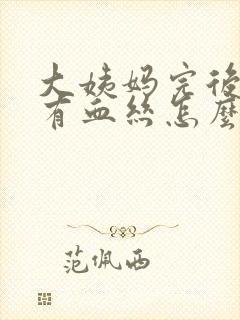 大姨妈完後
有血丝怎麼
范佩西